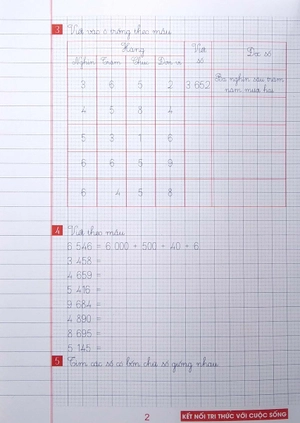 3 Viết vào ô trống theo mẫu
Hàng Viết số Đọc số
Nghìn Trăm Chục Đơn vị
3 6 5 2 3 652 Ba nghìn sáu trăm
năm mươi hai
4 5 8 4
5 3 1 6
6 6 5 9
6 4 5 8
4 Viết theo mẫu
6 546 = 6 000 + 500 + 40 + 6
3 458 =
4 659 =
5 416 =
9 684 =
4 890 =
8 695 =
5 145 =
5 Tìm các số có bốn chữ số giống nhau
2 KẾT NỐI TRI THỨC VỚI CUỘC SỐNG